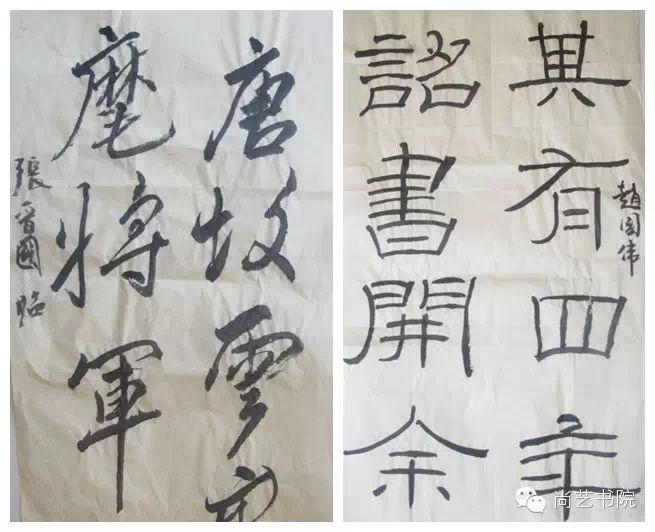 唐故雲
麾將軍
張晉國 臨
其有四年
詔書開余
趙国伟
尚艺书院